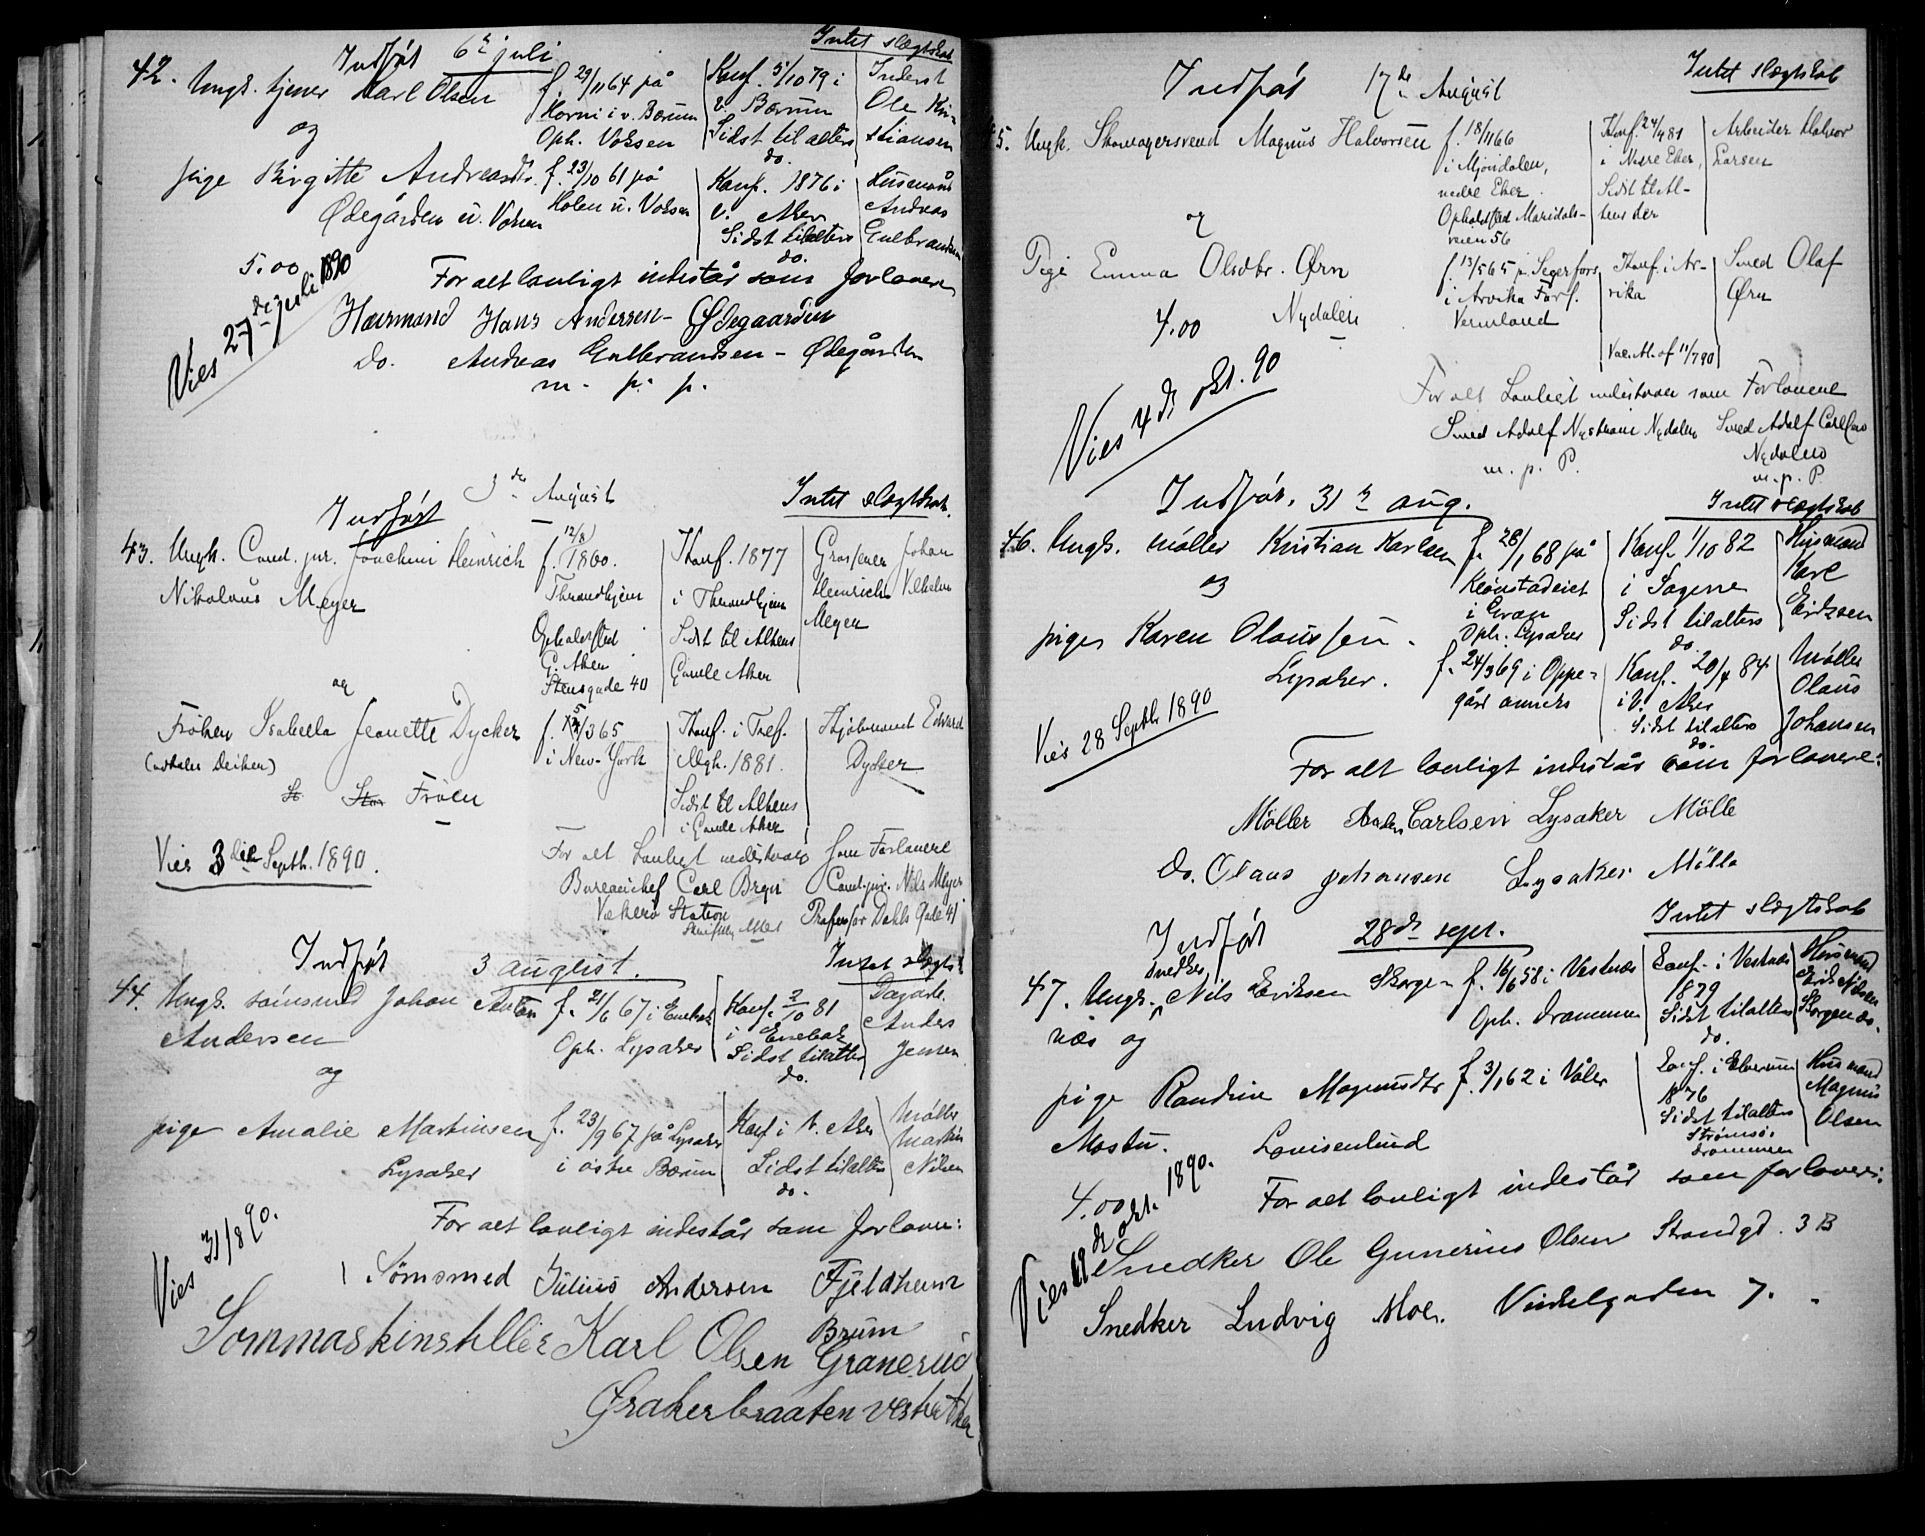 Indført 6te juli Intet slægtskab
42. Ungk. tjener Karl Olsen f. 29/11 64 på Konf. 5/10 79 i Inderst
og Horni i v. Bærum v. Bærum Ole Kri-
Oph. Voksen Sidst til alters stiansen
do.
pige Birgitte Andreasdtr. f. 23/10 61 på Konf. 1876 i Husmand
Ødegården u. Voksen Holen u. Voksen V. Aker Andreas
Sidst til alters Gulbrandsen
do.
5.00
For alt lovligt indestår som forlovere
Husmand Hans Andersen - Ødegaarden
do. Andreas Gulbrandsen - Ødegården
m. p. p.
Viet 27de juli 1890
Indført 3de August Intet slægtskab.
43. Ungk. Cand. jur. Joachim Heinrich f. 12/8 1860. Konf. 1877 Grosserer Johan
Nikolaus Meyer Throndhjem i Throndhjem Heinrich Vilhelm
Opholdssted Sidst til Alters Meyer
G. Aker Gamle Aker
Stensgade 40
og
Frøken Isabella Jeanette Dycker f. /3 65 Konf. i Tref. Kjøbmand Edward
(udtales Deiker) i New-York Mgh. 1881. Dycker
St. Stor Frøen Sidst til Alters
i Gamle Aker
Viet 3die Septbr. 1890.
For alt Lovligt indestaar som Forlovere
Bureauchef Carl Cand. jur. Nils Meyer
Vækerø Station Professor Dahls Gade 41
Aker
Indført 3 august. Intet slægts.
44. Ungk. sømsmed Johan Anton f. 21/6 67 i Enebak Konf. 2/10 81 Dagarb.
Andersen Oph. Lysaker i Enebak Anders
og Sidst til alters Jensen
do.
pige Amalie Martinsen f. 23/9 67 på Lysaker Konf i V. Aker Møller
Lysaker i østre Bærum Sidst til alters Martin
do. Nilsen
For alt lovligt indestår som forlover:
Viet 31/8 90.
Sømsmed Julius Andersen Fjeldheim
Brum
Sommaskinstiller Karl Olsen Granerud
Ørakerbraaten vestre Aker
Indført 17de August Intet slægtskab
45. Ungk. Skomagersvend Magnus Halvorsen f. 18/11 66 Konf. 24/4 81 Arbeider Halvor
i Mjøndalen, i Nedre Eker, Larsen
nedre Eker. Sidst til Al-
og Opholdssted Maridals- ters der
veien 56
Pige Emma Olsdtr. Ørn f. 13/5 65 p. Segerfors Konf. i Ar- Smed Olaf
Nydalen i Arvika Förs. vika Ørn
4.00 Vermland
Vac. At. af 11/7 90
For alt Lovligt indestaar som Forlovere
Smed Adolf Nystrøm Nydalen Smed Adolf Carlson
Nydalen
m. p. P. m. p. P
Viet 4de okt. 90
Indført. 31te aug. Intet slægtskab
46. Ungk. møller Kristian Karlsen f. 28/1 68 på Konf. 1/10 82 Husmand
og Kjønstadeiet i Sagene Karl
i Gran Sidst til alters Eriksen
Oph. Lysaker do.
pige Karen Olaussen. f. 24/3 69 i Oppe- Konf. 20/4 84 Møller
Lysaker. gård annex i V. Aker Olaus
Sidst til alters Johansen
do.
Viet 28 Septbr 1890
For alt lovligt indestår som forlovere:
Møller Anders Carlsen Lysaker Mølle
Do. Olaus Johansen Lysaker Mølle
Indført 28de sept. Intet slægtskab
47. Ungk. snedker Nils Eriksen Skorge- f. 16/6 58 i Vestnæs Konf. i Vestnæs Husmand
næs og Oph. Drammen 1879 Erik Nilsen
Sidst til alters Skorgenæs.
do.
pige Randine Magnusdtr f. 3/1 62 i Våler Konf. i Elverum Husmand
Mostu. Louisenlund 1876 Magnus
Sidst til alters Olsen
Strømsø,
Drammen
4.00
For alt lovligt indestår som forlovere:
Viet 19de okt. 1890.
Snedker Ole Gunerius Olsen Strandgd. 3 B
Snedker Ludvig Moe. Vinkelgaden 7.